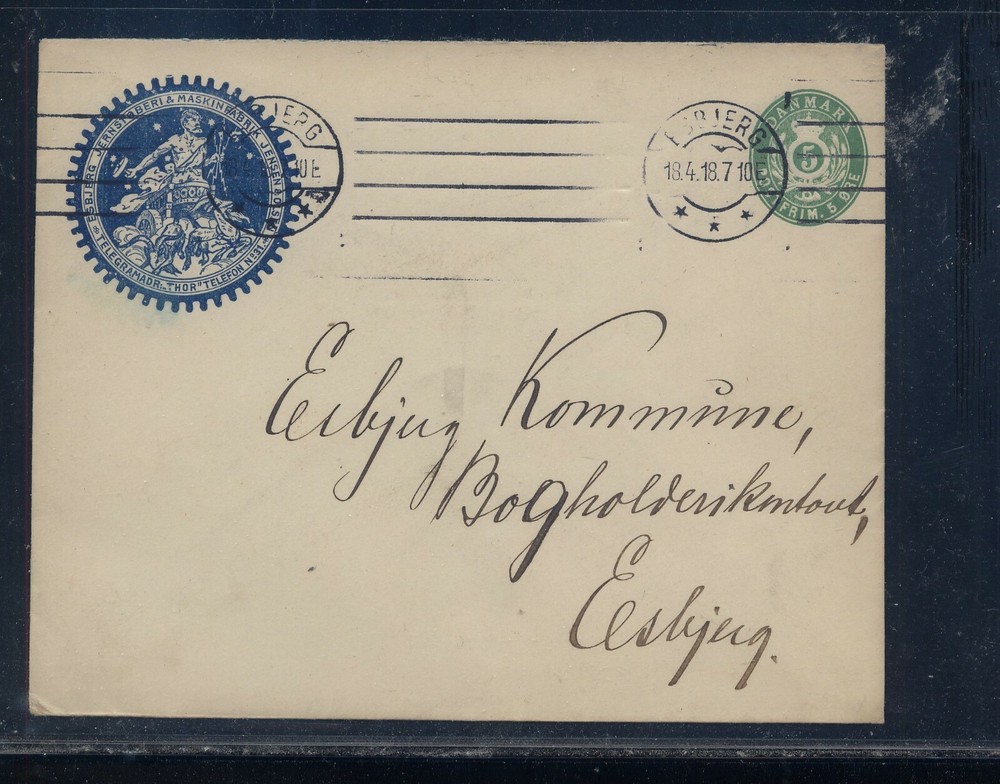 ESBJERG JERNSTØBERI & MASKINFABRIK JENSEN & OLSEN
TELEGRAMADR: "THOR" TELEFON No
JERG
10E
ESBJERG
18.4.18.7 10E
DANMARK
5
FRIM. 5 ØRE
Esbjerg Kommune,
Bogholderikontoret,
Esbjerg.